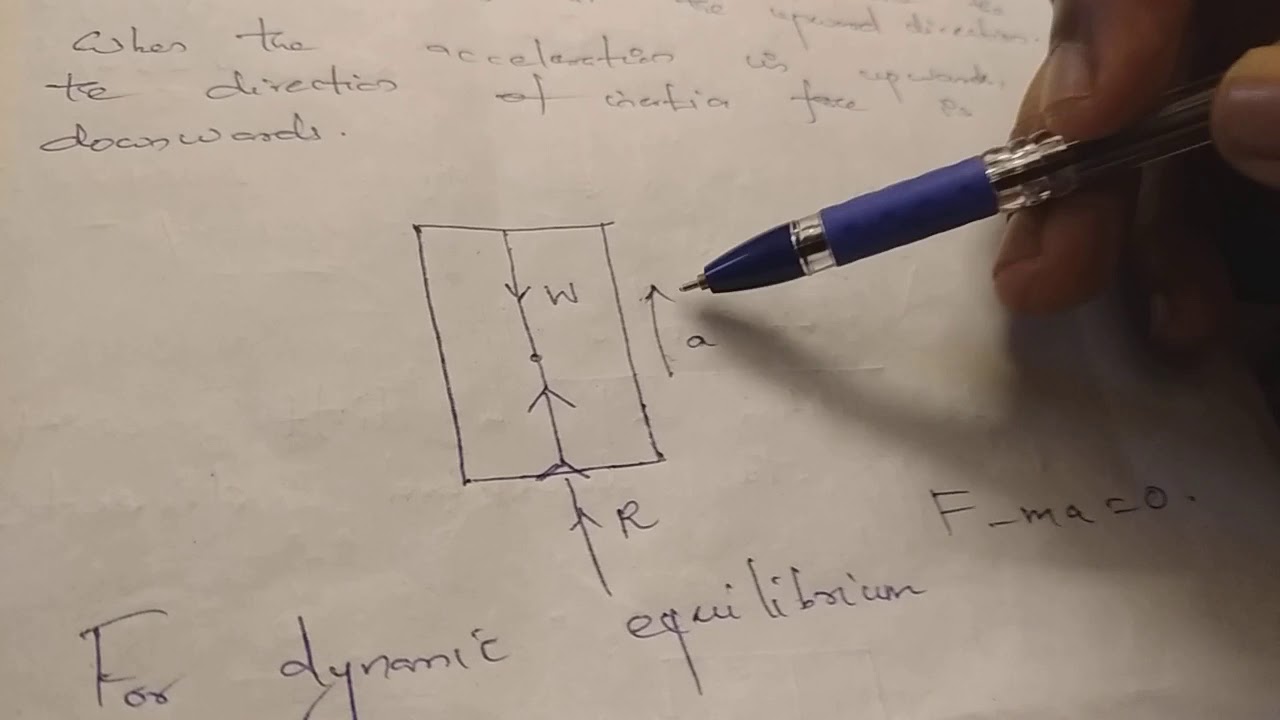 the upward direction.
When the acceleration is upwards,
the direction of inertia force is
downwards.
W
a
R
F - ma = 0.
For dynamic equilibrium